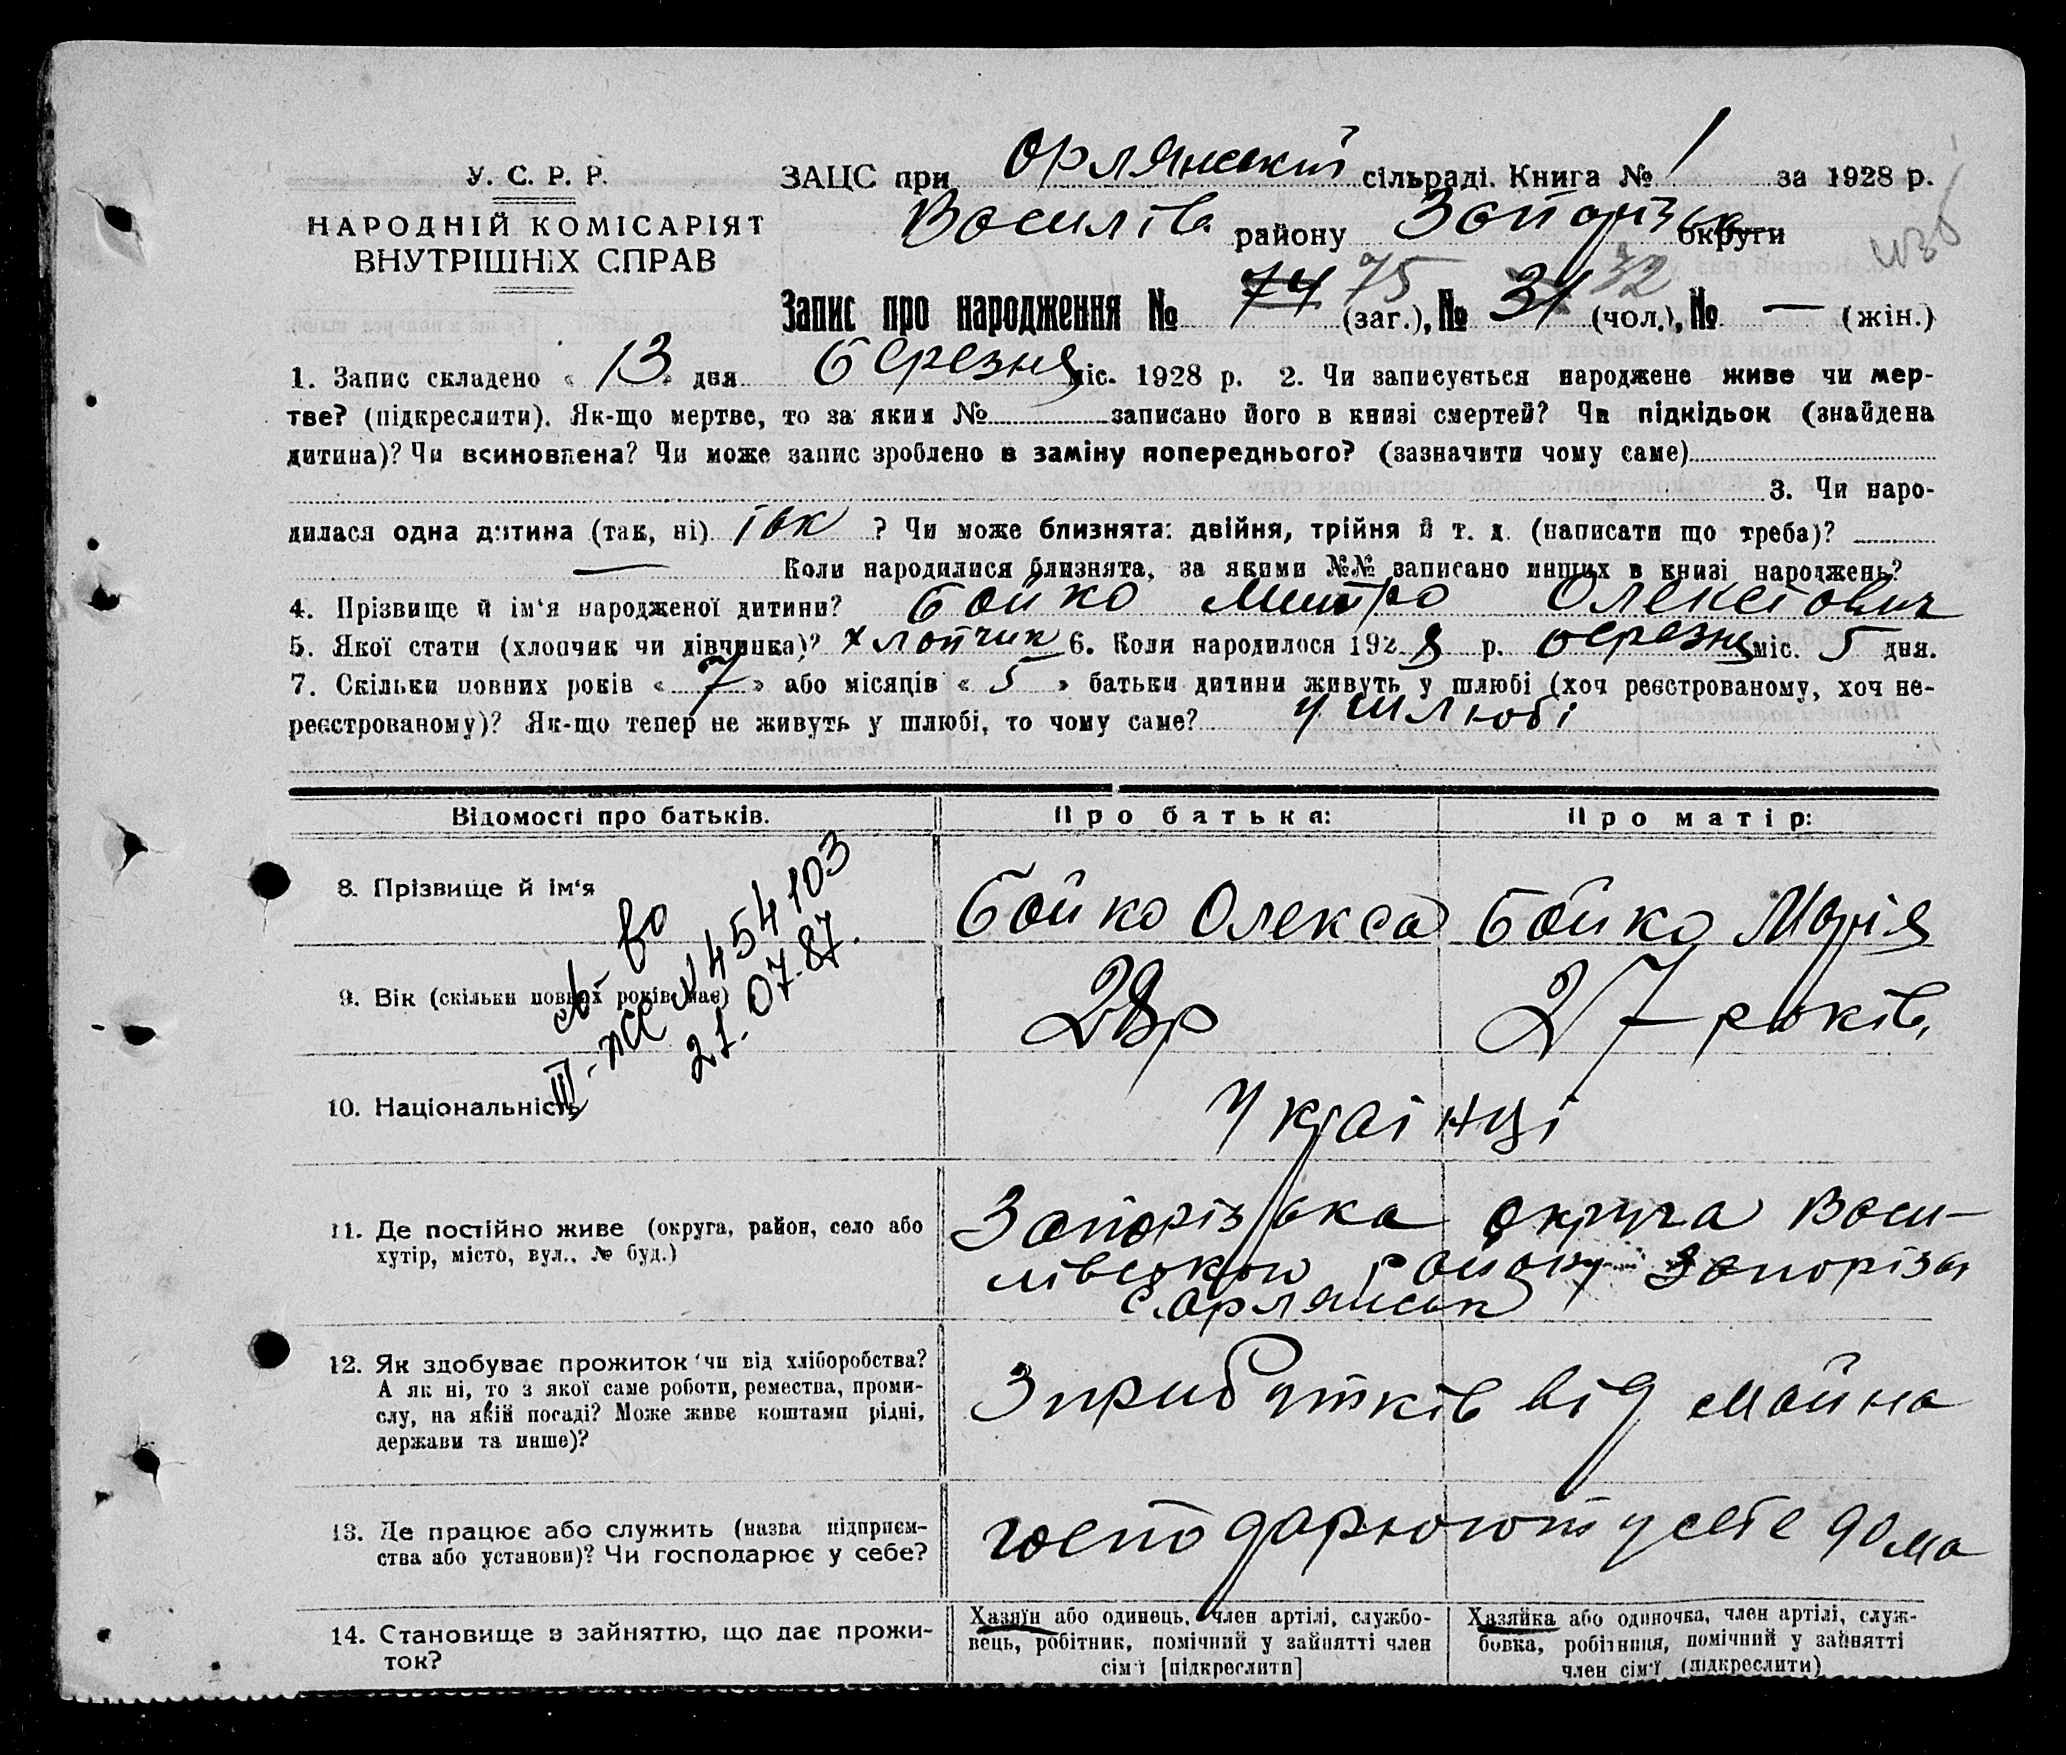 У. С. Р. Р.
НАРОДНІЙ КОМІСАРІЯТ
ВНУТРІШНІХ СПРАВ
ЗАЦС при Орлянській сільраді. Книга № 1 за 1928 р.
Василів району Запорізьк округи
Запис про народження № 74 75 (заг.), № 31 32 (чол.), № — (жін.)
1. Запис складено « 13 » дня березня міс. 1928 р. 2. Чи записується народжене живе чи мер-
тве? (підкреслити). Як-що мертве, то за яким № записано його в книзі смертей? Чи підкідьок (знайдена
дитина)? Чи всиновлена? Чи може запис зроблено в заміну попереднього? (зазначити чому саме)
3. Чи наро-
дилася одна дитина (так, ні) так ? Чи може близнята: двійня, трійня й т. д. (написати що треба)?
— Коли народилися близнята, за якими №№ записано инших в книзі народжень?
4. Прізвище й ім‘я народженої дитини? Бойко Митро Олексієвич
5. Якої стати (хлопчик чи дівчинка)? хлопчик 6. Коли народилося 1928 р. березня міс. 5 дня.
7. Скільки повних років « 7 » або місяців « 5 » батьки дитини живуть у шлюбі (хоч реєстрованому, хоч не-
реєстрованому)? Як-що тепер не живуть у шлюбі, то чому саме? у шлюбі
Відомості про батьків. Про батька: Про матір:
8. Прізвище й ім‘я Бойко Олекса Бойко Марія
9. Вік (скільки повних років має) 28 р 27 років
III-ЖС № 454103
21.07.87.
10. Національність Українці
11. Де постійно живе (округа, район, село або
хутір, місто, вул., № буд.)
Запорізька округа Васи-
лівського району
с. Орлянськ
12. Як здобуває прожиток чи від хліборобства?
А як ні, то з якої саме роботи, ремества, проми-
слу, на якій посаді? Може живе коштами рідні,
держави та инше)?
З прибутків від майна
13. Де працює або служить (назва підприєм-
ства або установи)? Чи господарює у себе?
господарюють у себе дома
14. Становище в зайняттю, що дає прожи-
ток?
Хазяїн або одинець, член артілі, службо-
вець, робітник, помічний у зайнятті член
сім‘ї [підкреслити]
Хазяйка або одиночка, член артілі, служ-
бовка, робітниця, помічний у зайнятті
член сім‘ї (підкреслити)